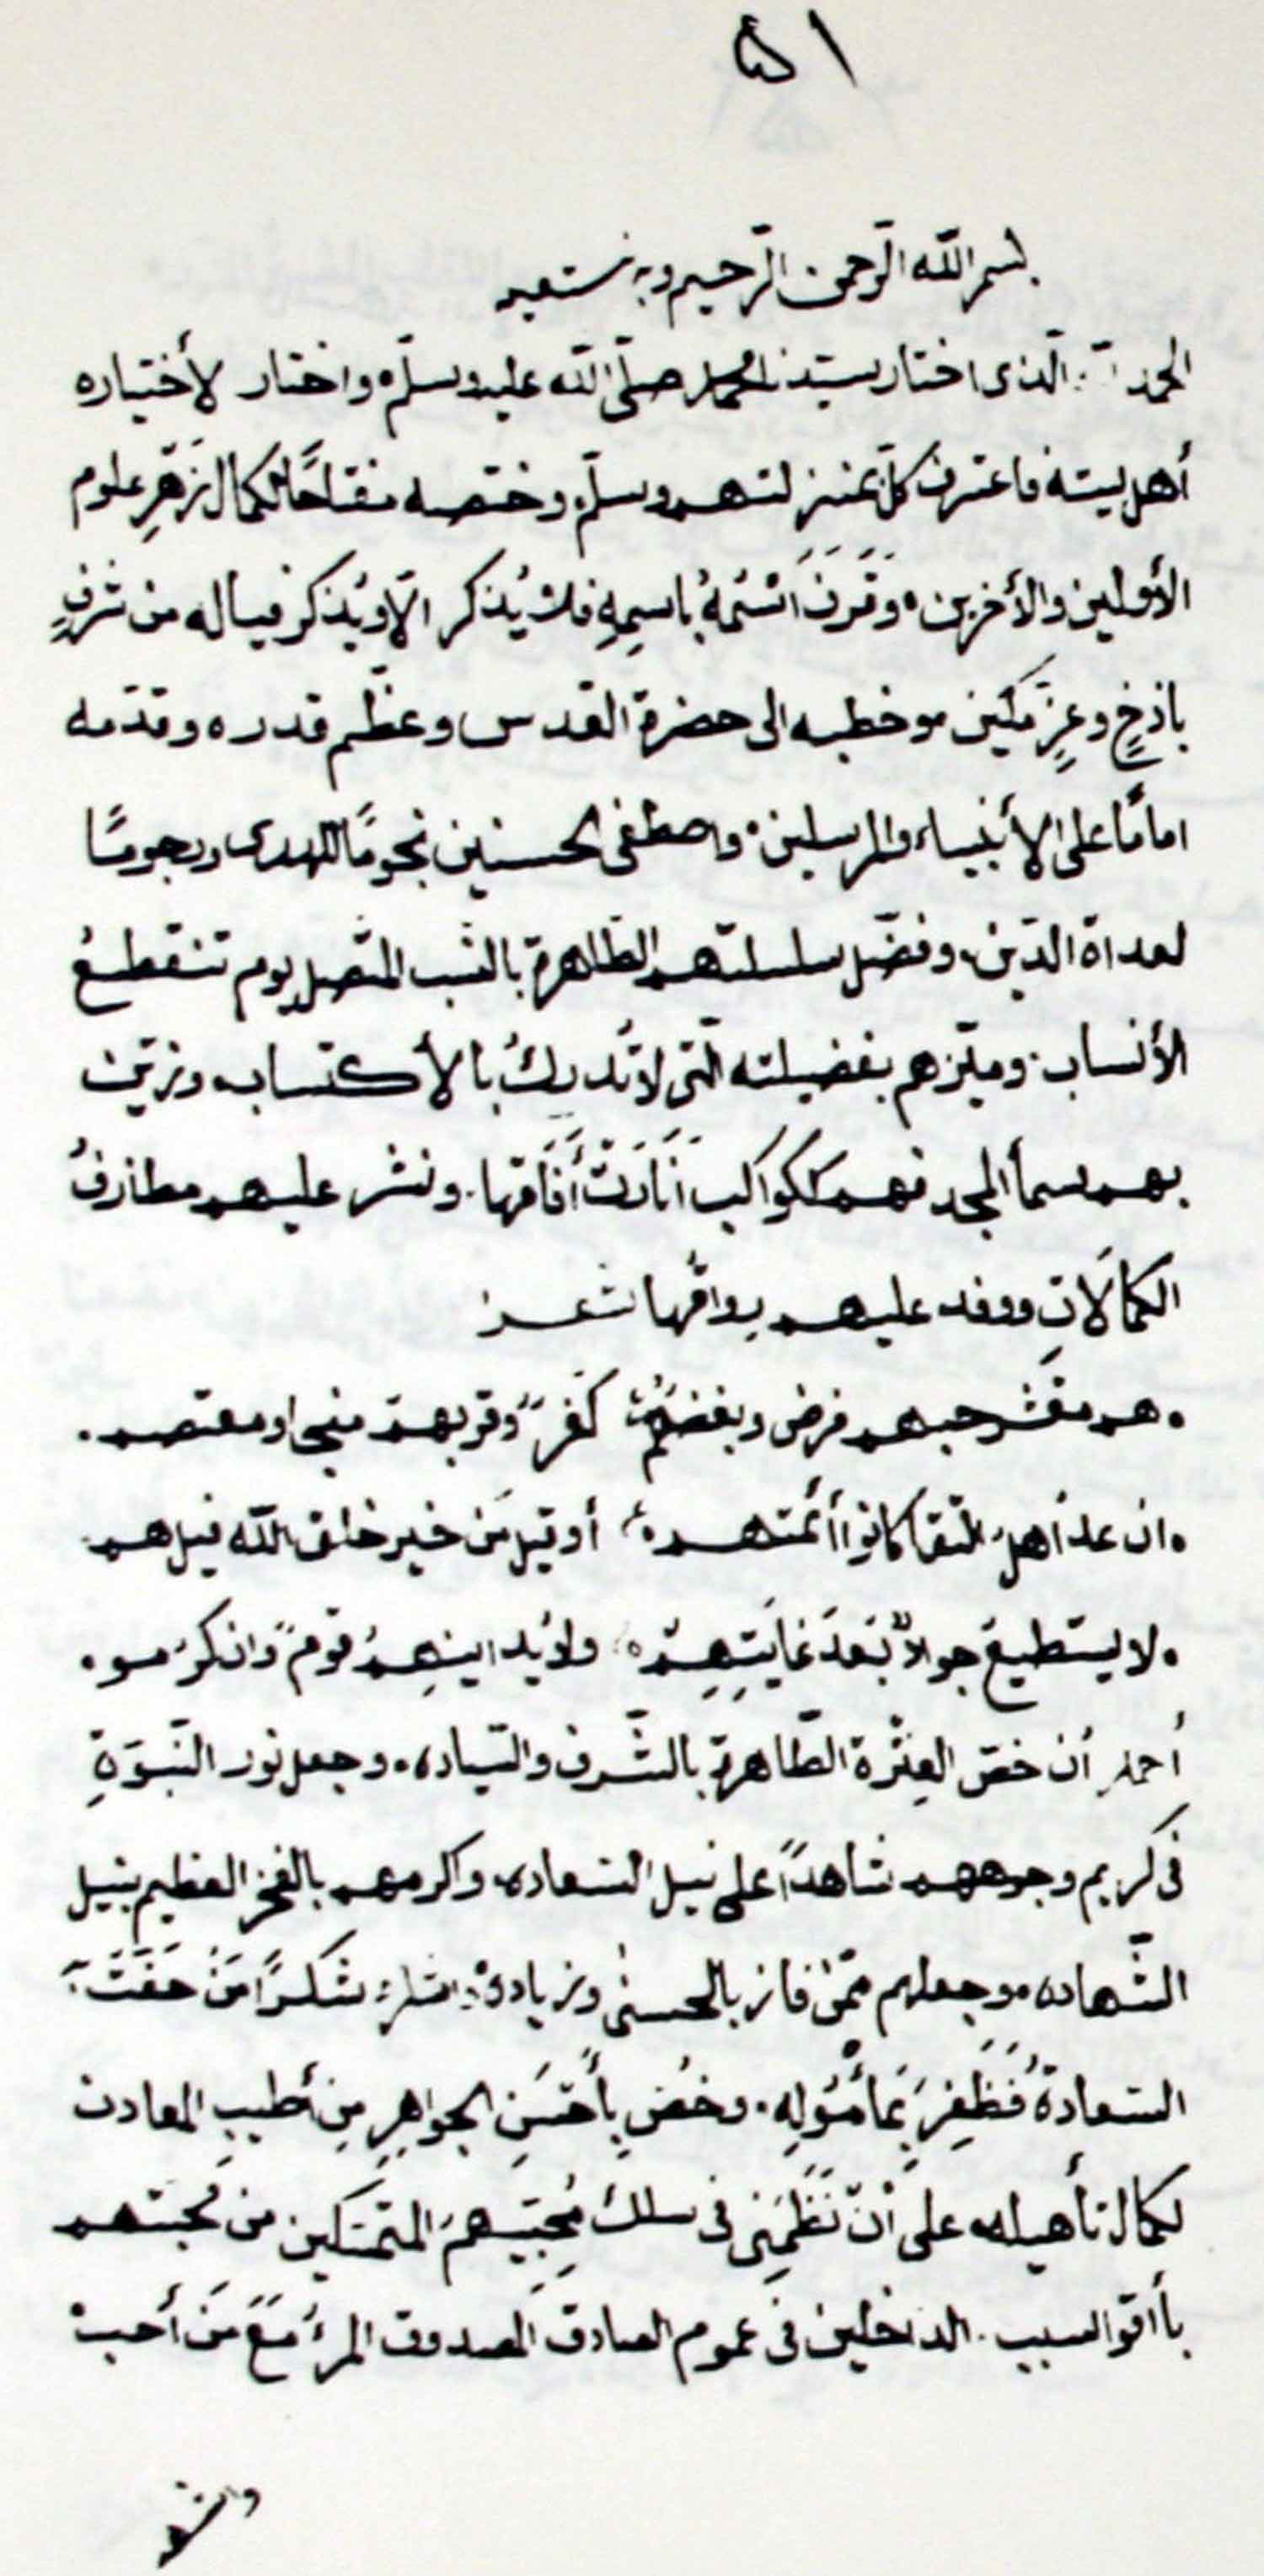 ١٥
بسم الله الرحمن الرحيم وبه نستعين
الحمد الذى اختار سيدنا محمد صلى الله عليه وسلم واختار لأختياره
أهل بيته فاعترف كل بمنزلتهم وسلم وختصه مفتاحًا لكمال زهر علوم
الأولين والأخرين، وقَرَنَ اسْمُهُ باسمِهِ فلا يُذكر الّا ويُذكر فياله من شرفٍ
باذخٍ وعِزٍ مكين وخطبه الى حضرة القدس وعظّم قدره وقدّمه
امامًا على الأنبياء والمرسلين، واصطفى الحسنين نجومًا للهدى ورجومًا
لعداة الدّين، وفضّل سلسلتهم الطّاهرة بالنسب المتّصل يوم تنقطعُ
الأنساب، وميّزهم بفضيلته الّتى لا تُدركُ بالأكتساب، وزيّن
بهم سمأ المجد فهم كلكواكب أنَارَتْ أَفَاقها، ونشر عليهم مطارفُ
الكمالَاتِ ووفد عليهم رواقها شعر
هم معشر حبهم فرض وبغضُهُمْ كفرٌ وقربهم منجى ومعتصم
ان عدّ أهل التقا كانوا أأئمتهم أو قيل مَن خير خلق الله قيل هم
لا يستطيع جوادٌ بَعدَ غايَتِهِمْ ولا يدانيهِمُ قومٌ وان كرُموا
أحمدُ أن خصّ العِتْرة الطّاهرة بالشّرف والسّياده، وجعل نور النّبوّةِ
فى كريم وجوههم شاهداً على نيل السعاده، واكرمهم بالفخر العظيم بنيل
الشّهاده، وجعلهم ممّن فاز بالحسنى وزيادة، اشكر شكرًا مَنْ حَفَّتْهُ
السعادةُ فَظَفِرَ بمأمُولِه، وخُصّ بأحسَنِ الجواهرِ مِن أطيبِ المعادن
لكمال تأهيله على أنْ نَظَمَنِى فى سلك مُحِبّيهمْ المتمسكين من محبتهم
بأاقوا لسبب، الداخلين فى عموم الصادق المصدوق المرءُ مَعَ مَن أحب